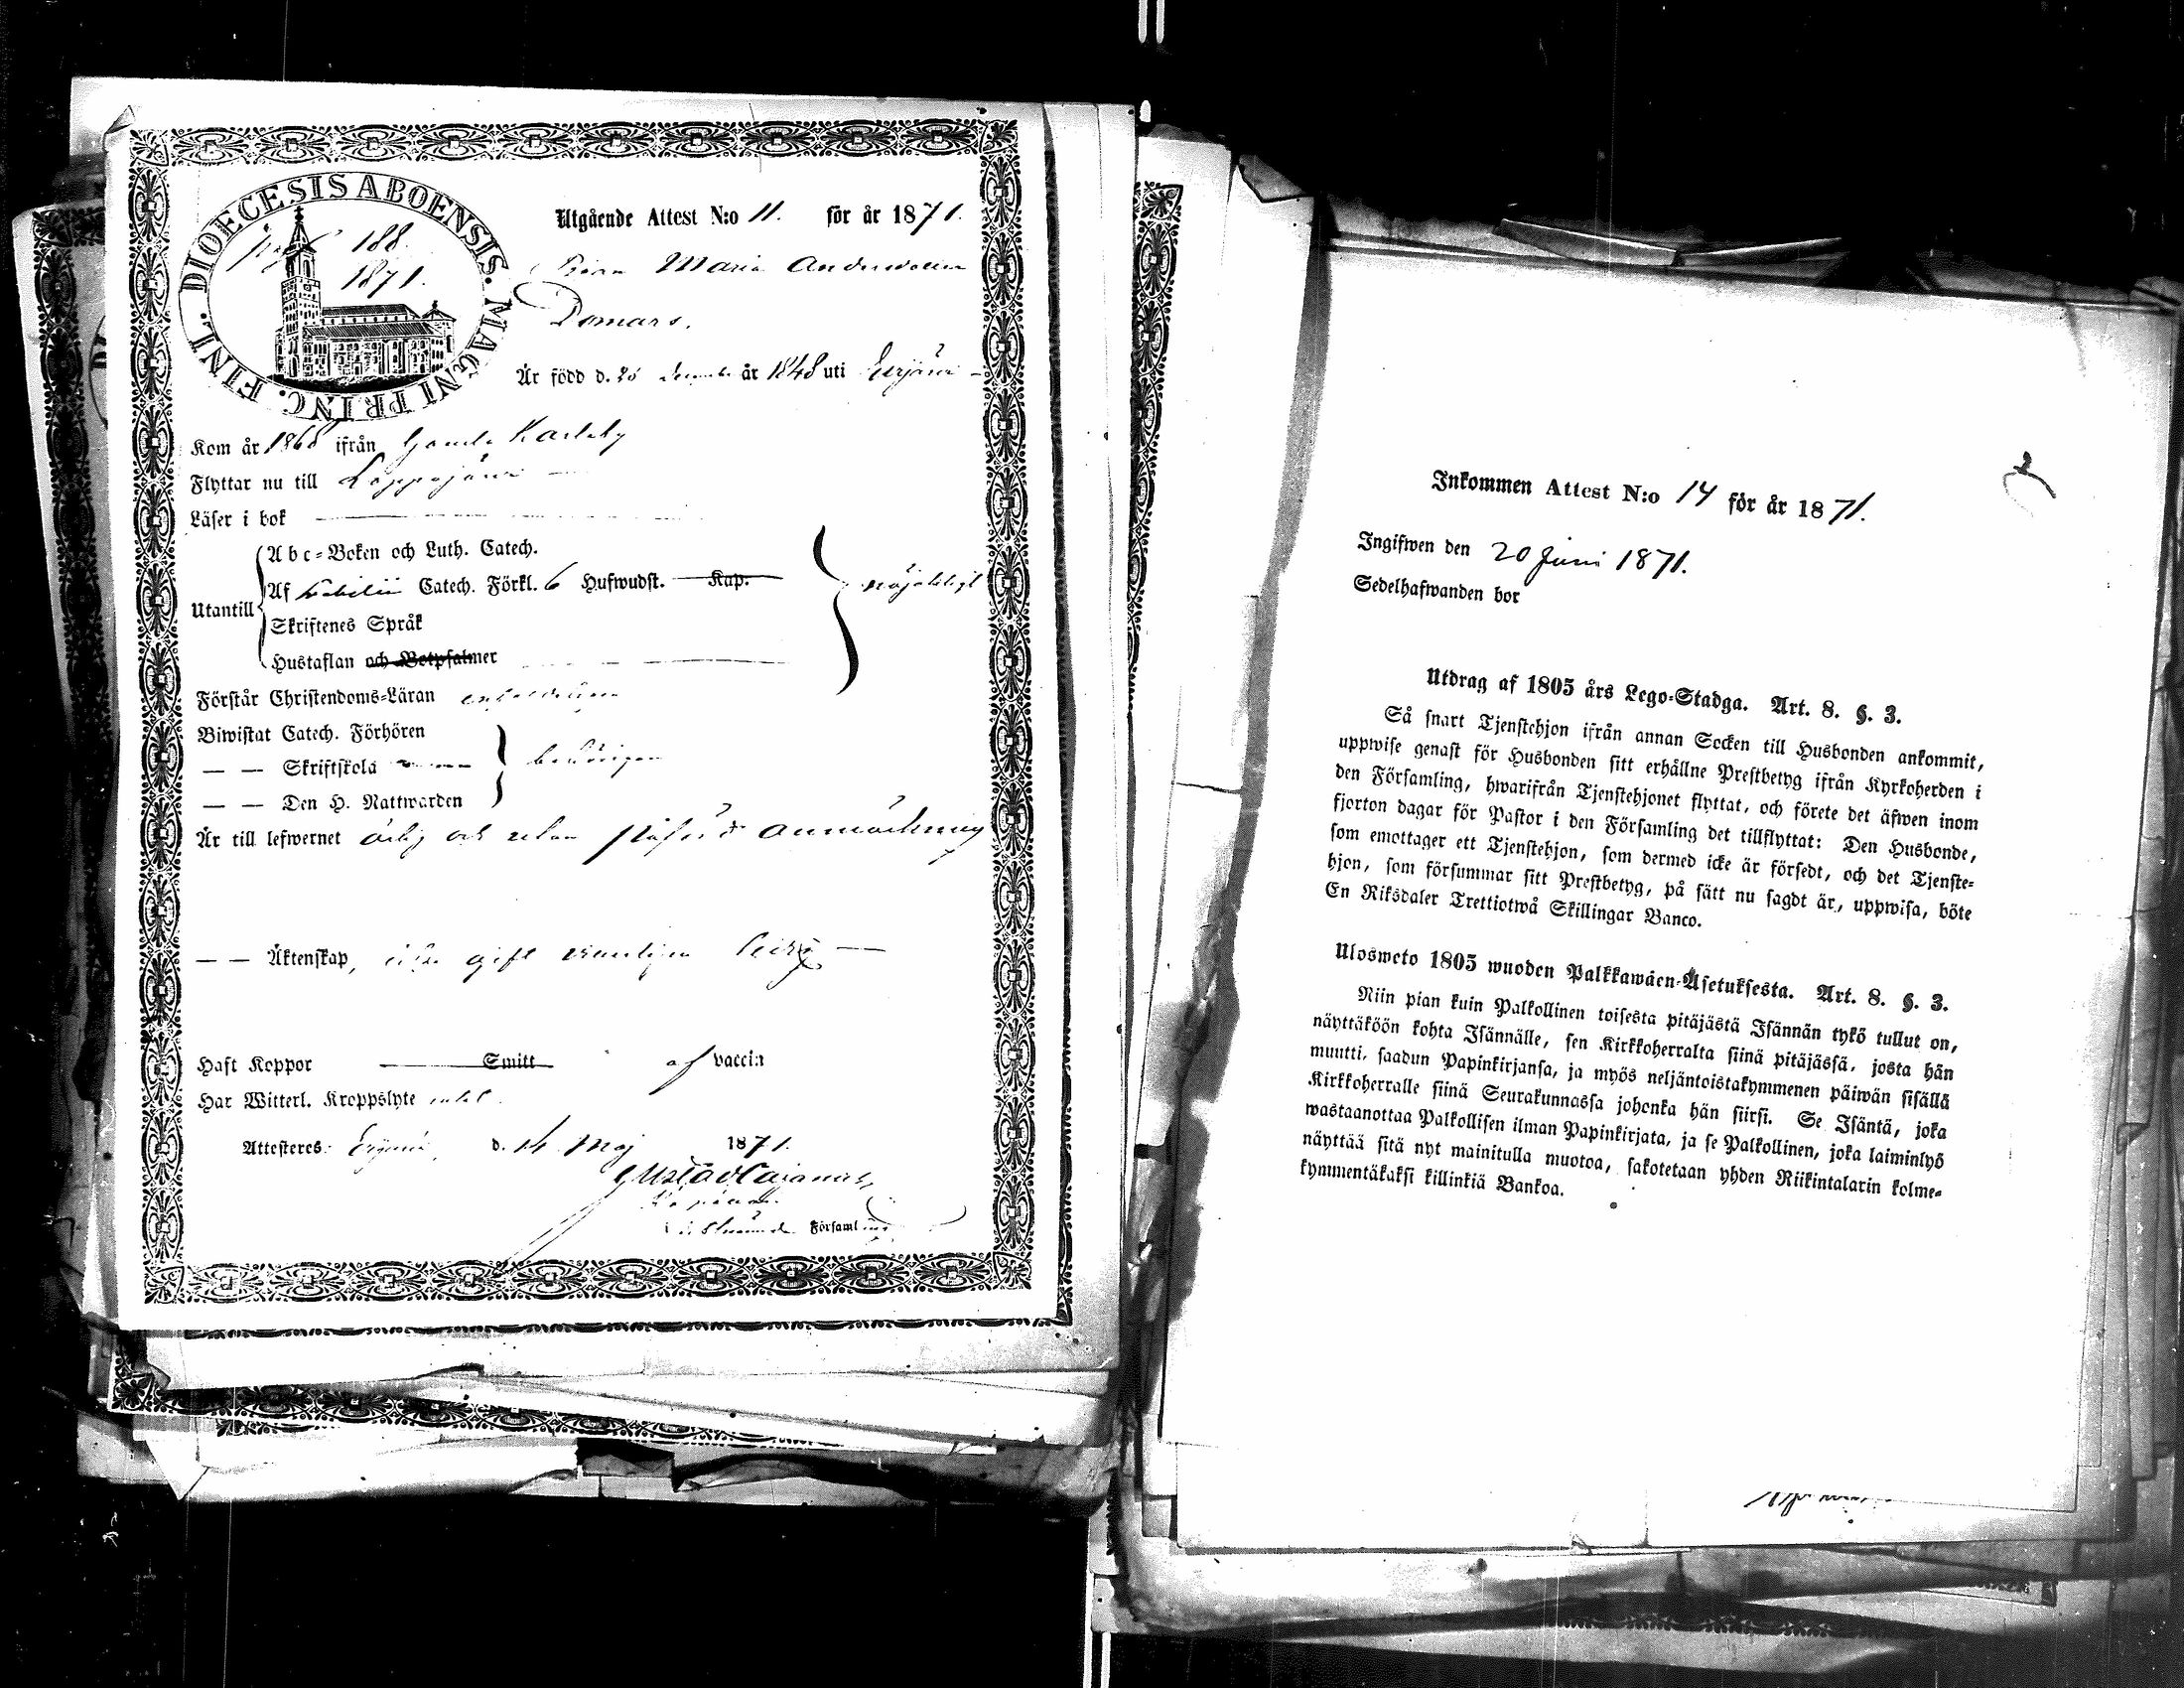 DIOECESIS ABOENSIS. MAGNI PRINC. FINL.
pag 188.
1871.
Utgående Attest N:o 11. för år 1871.
Maria Andersdotter
Domars.
Är född d. 26 december år 1848 uti Evijärvi
Kom år 1868 ifrån Gamla Karleby
Flyttar nu till Lappajärvi
Läser i bok
Utantill
Abc-Boken och Luth. Catech.
Af Svebilii Catech. Förkl. 6 Hufwudst. Kap.
Skriftenes Språk
Hustaflan och Botpsalmer
nöjaktigt
Förstår Christendoms-Läran enfaldeligen
Biwistat Catech. Förhören
— — Skriftskola
— — Den H. Nattwarden
behörigen
Är till lefwernet ärlig och utan påförd anmärkning
— — Äktenskap, icke gift veterligen ledig —
Haft Koppor Smitt af vaccin
Har Witterl. Kroppslyte intet.
Attesteres: Evijärvi d. 14 Maj 1871.
Gustav Cajanus,
Kapellan
Församling
Inkommen Attest N:o 14 för år 1871.
Ingifwen den 20 Juni 1871.
Sedelhafwanden bor
Utdrag af 1805 års Lego-Stadga. Art. 8. §. 3.
Så snart Tjenstehjon ifrån annan Socken till Husbonden ankommit,
uppwise genast för Husbonden sitt erhållne Prestbetyg ifrån Kyrkoherden i
den Församling, hwarifrån Tjenstehjonet flyttat, och förete det äfwen inom
fjorton dagar för Pastor i den Församling det tillflyttat: Den Husbonde,
som emottager ett Tjenstehjon, som dermed icke är försedt, och det Tjenste-
hjon, som försummar sitt Prestbetyg, på sätt nu sagdt är, uppwisa, böte
En Riksdaler Trettiotwå Skillingar Banco.
Ulosweto 1805 wuoden Palkkawäen-Asetuksesta. Art. 8. §. 3.
Niin pian kuin Palkollinen toisesta pitäjästä Isännän tykö tullut on,
näyttäköön kohta Isännälle, sen Kirkkoherralta siinä pitäjässä, josta hän
muutti, saadun Papinkirjansa, ja myös neljäntoistakymmenen päiwän sisällä
Kirkkoherralle siinä Seurakunnassa johonka hän siirsi. Se Isäntä, joka
wastaanottaa Palkollisen ilman Papinkirjata, ja se Palkollinen, joka laiminlyö
näyttää sitä nyt mainitulla muotoa, sakotetaan yhden Riikintalarin kolme-
kymmentäkaksi killinkiä Bankoa.